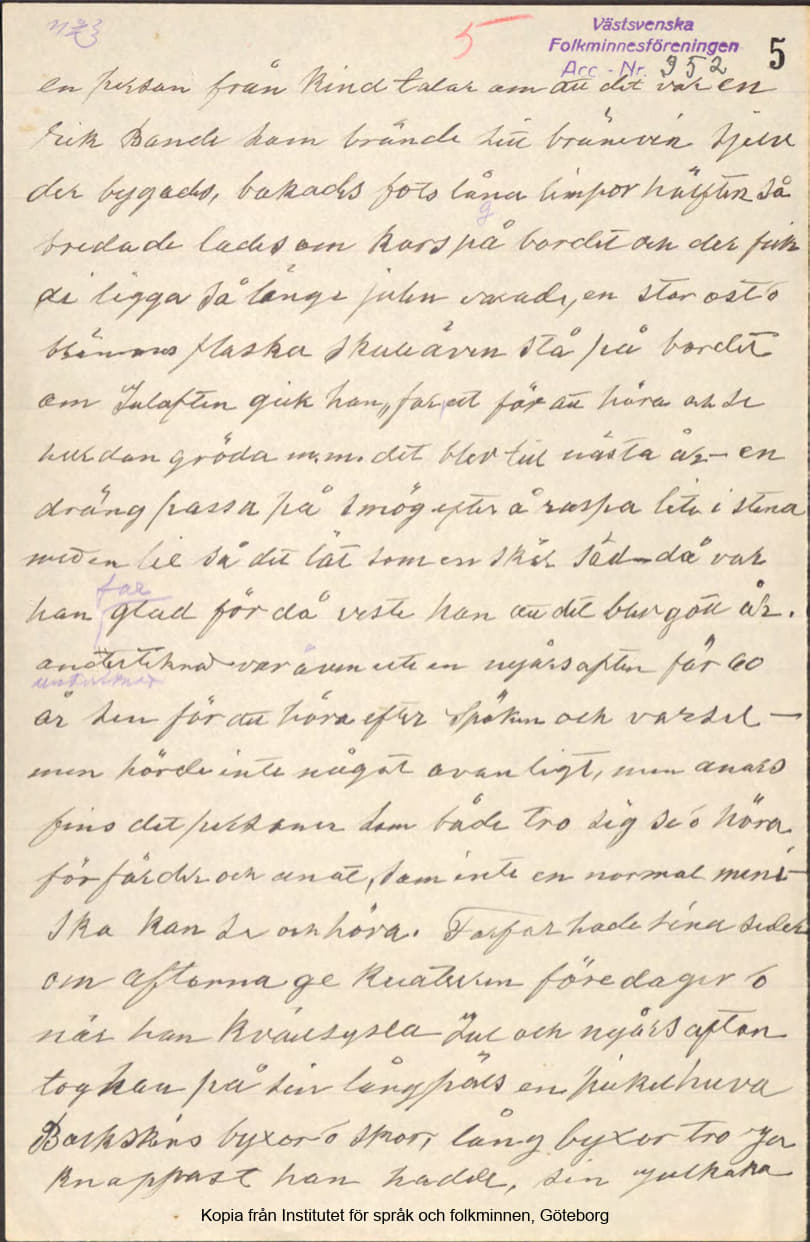 5
Västsvenska
Folkminnesföreningen
Acc - Nr. 952
5
en person från Kind talar om att det var en
rik Bonde som brände sitt bränevin sjelv
der bygades, bakades fots låna limpor hälften så
g
bredade lades om kors på bordet och der fick
de ligga så länge julen varade, en stor ost o
flaska skulle även stå på bordet
om Julaften gick han, far, ut för att höra och se
hurdan gröda m.m. det blev till nästa år – en
dräng passa på smög efter å raspa lite i stena
med en lie så det lät som en skär säd – då var
far
han glad för då viste han att det blev gott år.
underteknad
antertiknad var även ute en nyårsaften för 60
år sen för att höra efter Spöken och varsel –
men hörde inte något ovanligt, men anars
fins det personer som både tro sig se o höra
förfärder och anat, som inte en normal meni-
ska kan se och höra. Farfar hade sina seder
om aftorna ge Kreaturen föredager o
när han kvälsysla Jul och nyårsafton
tog han på sin långpäls en pickelhuva
Bockskins byxor o skor, lång byxor tro jer
knappast han hadde, sin julkaka
Kopia från Institutet för språk och folkminnen, Göteborg